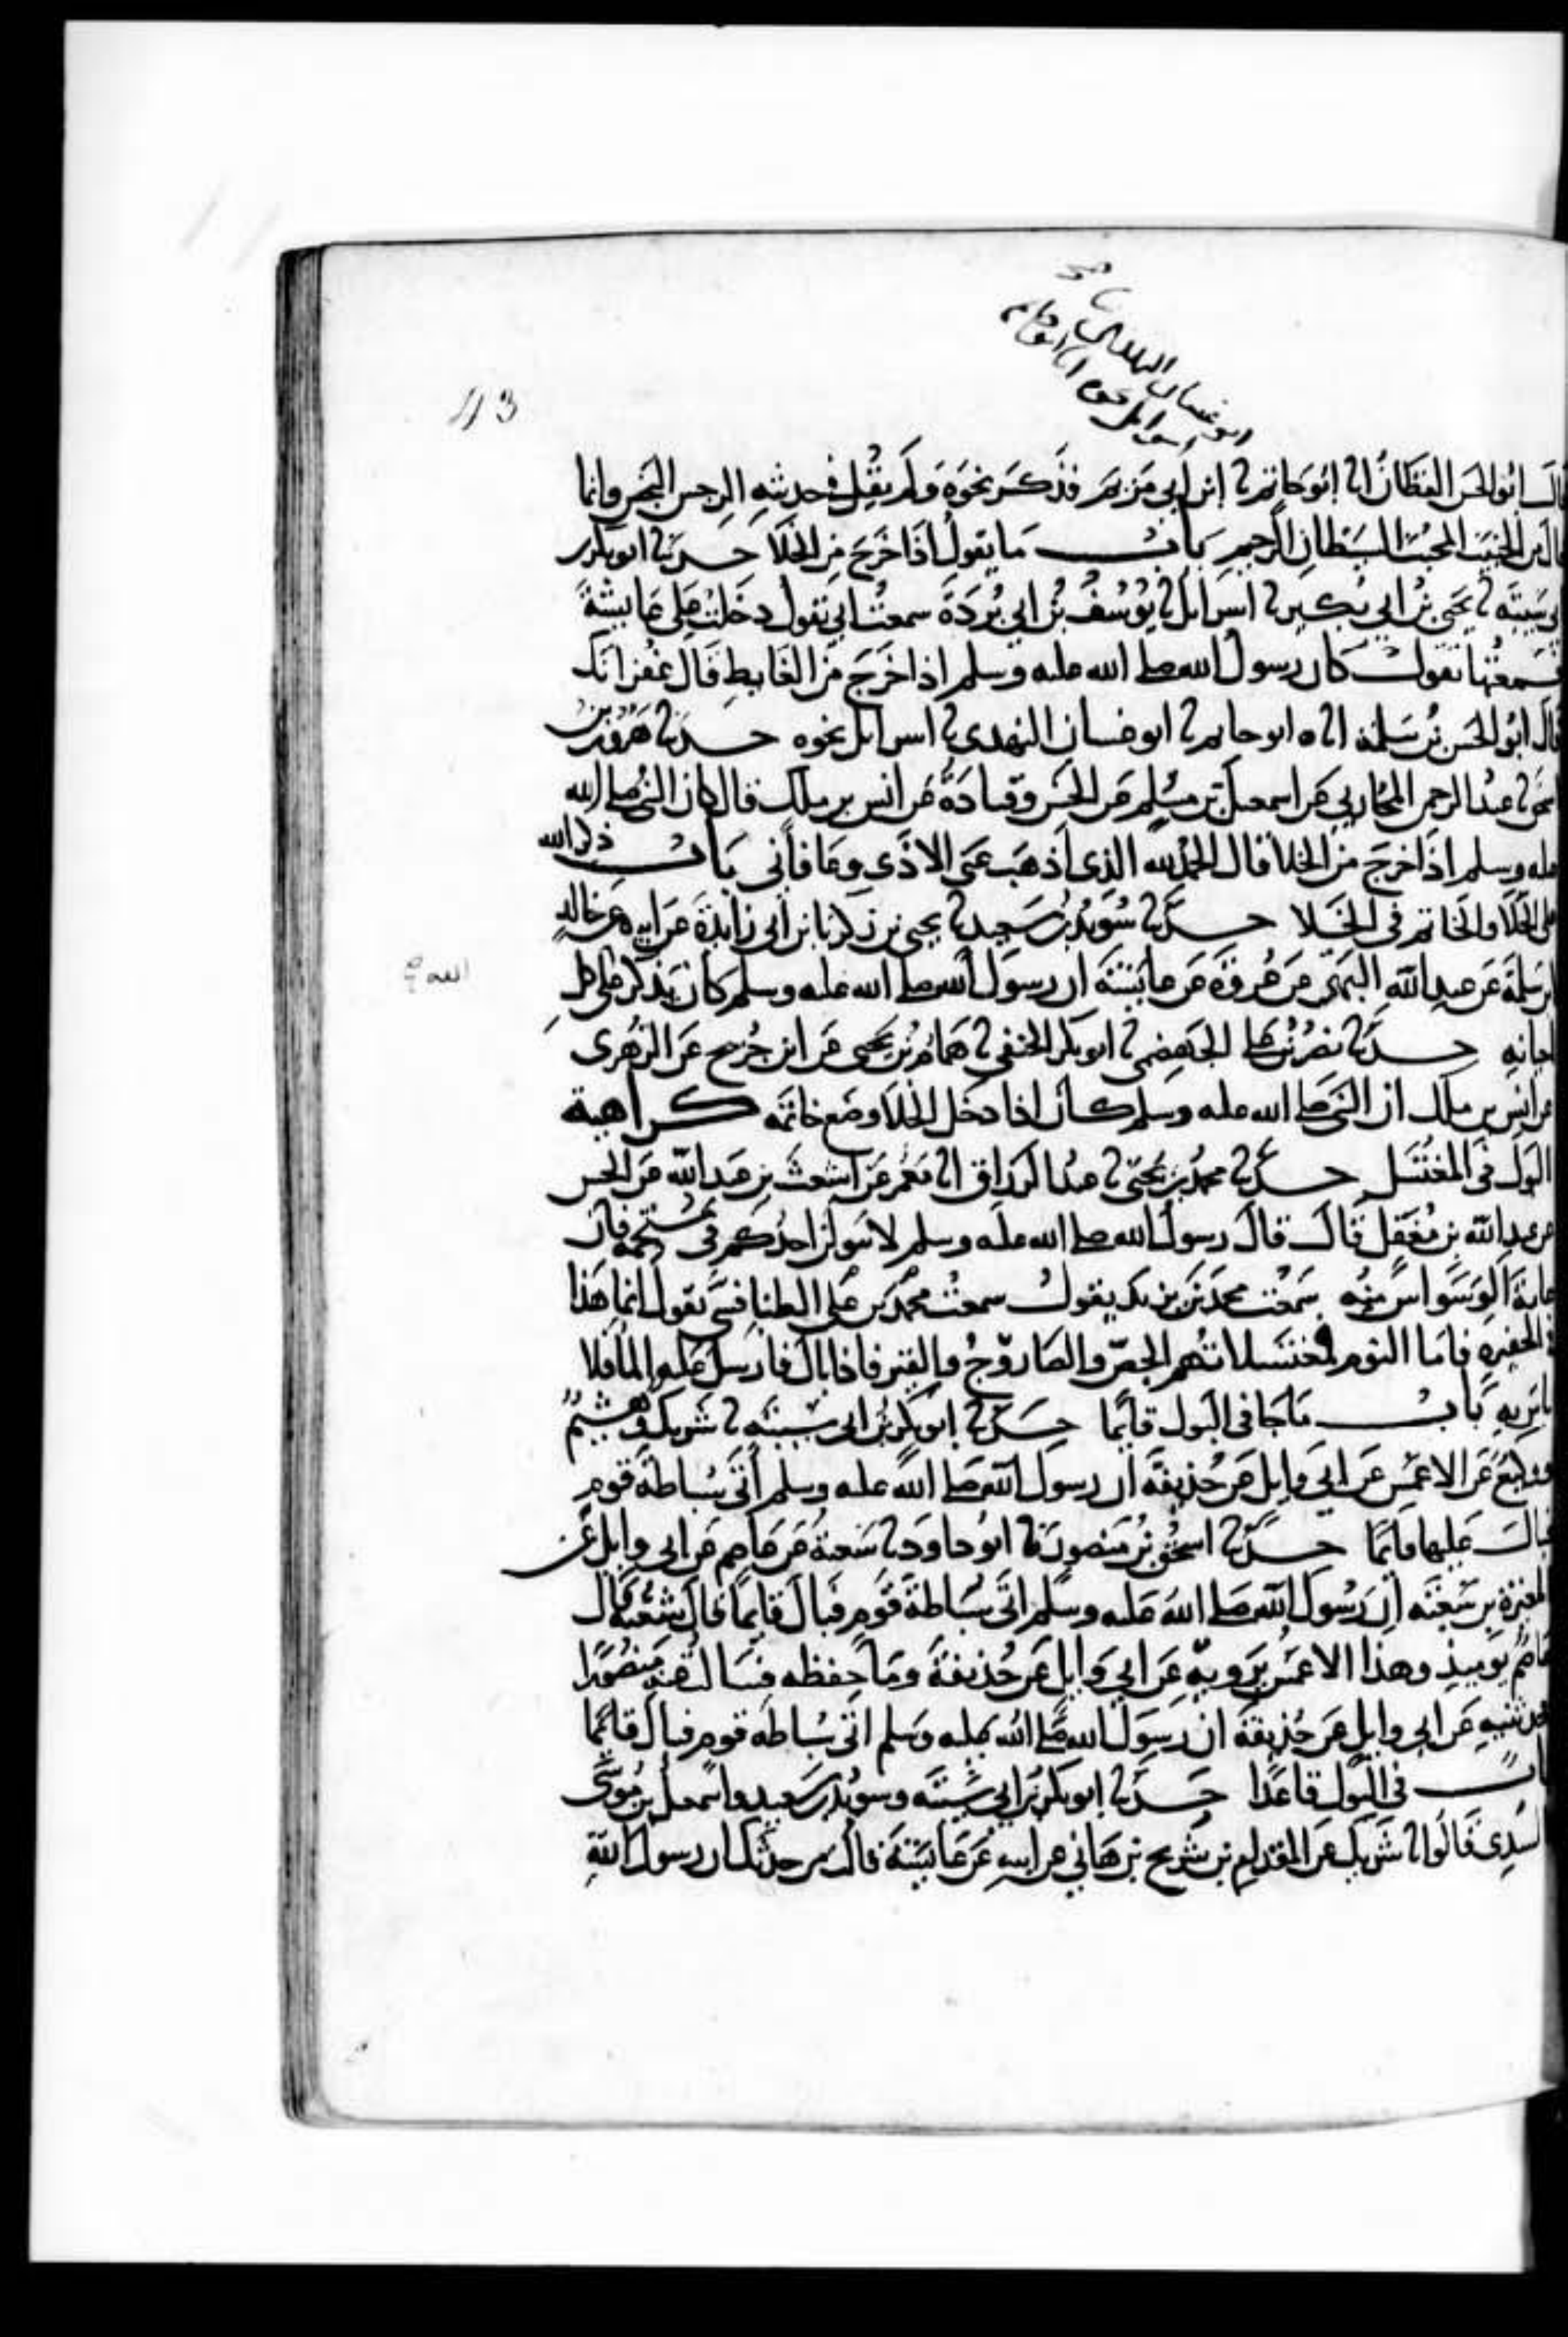 ابو غسان النهدي ثنا
اسرائيل نحوه انا ابو حاتم
43
قال ابو الحسن القطان انا ابو حاتم ثنا ابن ابي مريم فذكر نحوه ولم يقل في حديثه الرجس النجس وانما
قال من الخبيث المخبث الشيطان الرجيم باب ما يقول اذا خرج من الخلا حدثنا ابو بكر بن
ابي شيبة ثنا يحيى بن ابي بكير ثنا اسرائل ثنا يوسف بن ابي بردة سمعت ابي يقول دخلت على عايشة
فسمعتها تقول كان رسول الله صلى الله عليه وسلم اذا خرج من الغايط قال غفرانك
قال ابو الحسن بن سلمة انا ابو حاتم ثنا ابو غسان النهدي ثنا اسرائل نحوه حدثنا هرون بن
اسحق ثنا عبد الرحمن المحاربي عن اسمعيل بن مسلم عن الحسن وقتادة عن انس بن ملك قال كان النبي صلى الله
عليه وسلم اذا خرج من الخلا قال الحمد لله الذي اذهب عني الاذى وعافاني باب ذكر الله
على الخلا والخاتم في الخلا حدثنا سويد بن سعيد ثنا يحيى بن زكريا بن ابي زايدة عن ابيه عن خالد
بن سلمة عن عبد الله البهي عن عروة عن عايشة ان رسول الله صلى الله عليه وسلم كان يذكر على كل
الله صح
احيانه حدثنا نصر بن علي الجهضمي ثنا ابو بكر الحنفي ثنا همام بن يحيى عن ابن جريج عن الزهري
عن انس بن ملك ان النبي صلى الله عليه وسلم كان اذا دخل الخلا وضع خاتمه كراهية
البول في المغتسل حدثنا محمد بن يحيى ثنا عبد الرزاق انا معمر عن اشعث بن عبد الله عن الحسن
عن عبد الله بن مغفل قال قال رسول الله صلى الله عليه وسلم لا يبولن احدكم في مستحمه فان
عامة الوسواس منه سمعت محمد بن يزيد يقول سمعت محمد بن علي الطنافسي يقول انما هذا
في الحفيرة فاما اليوم لمغتسلاتهم الجص والصاروج والقير فاذا بال فارسل عليه الما فلا
باس به باب ما جا في البول قايما حدثنا ابو بكر بن ابي شيبة ثنا شريك وهشيم
ووكيع عن الاعمش عن ابي وايل عن حذيفة ان رسول الله صلى الله عليه وسلم اتى سباطة قوم
فبال عليها قايما حدثنا اسحق بن منصور ثنا ابو داود ثنا شعبة عن عاصم عن ابي وايل عن
المغيرة بن شعبة ان رسول الله صلى الله عليه وسلم اتى سباطة قوم فبال قايما قال شعبة قال
عاصم يوميذ وهذا الاعمش يرويه عن ابي وايل عن حذيفة وما حفظه فسالت عنه منصورا
فحدثنيه عن ابي وايل عن حذيفة ان رسول الله صلى الله عليه وسلم اتى سباطة قوم فبال قايما
باب في البول قاعدا حدثنا ابو بكر بن ابي شيبة وسويد بن سعيد واسمعيل بن موسى
السدي قالوا ثنا شريك عن المقدام بن شريح بن هاني عن ابيه عن عايشة قالت من حدثك ان رسول الله